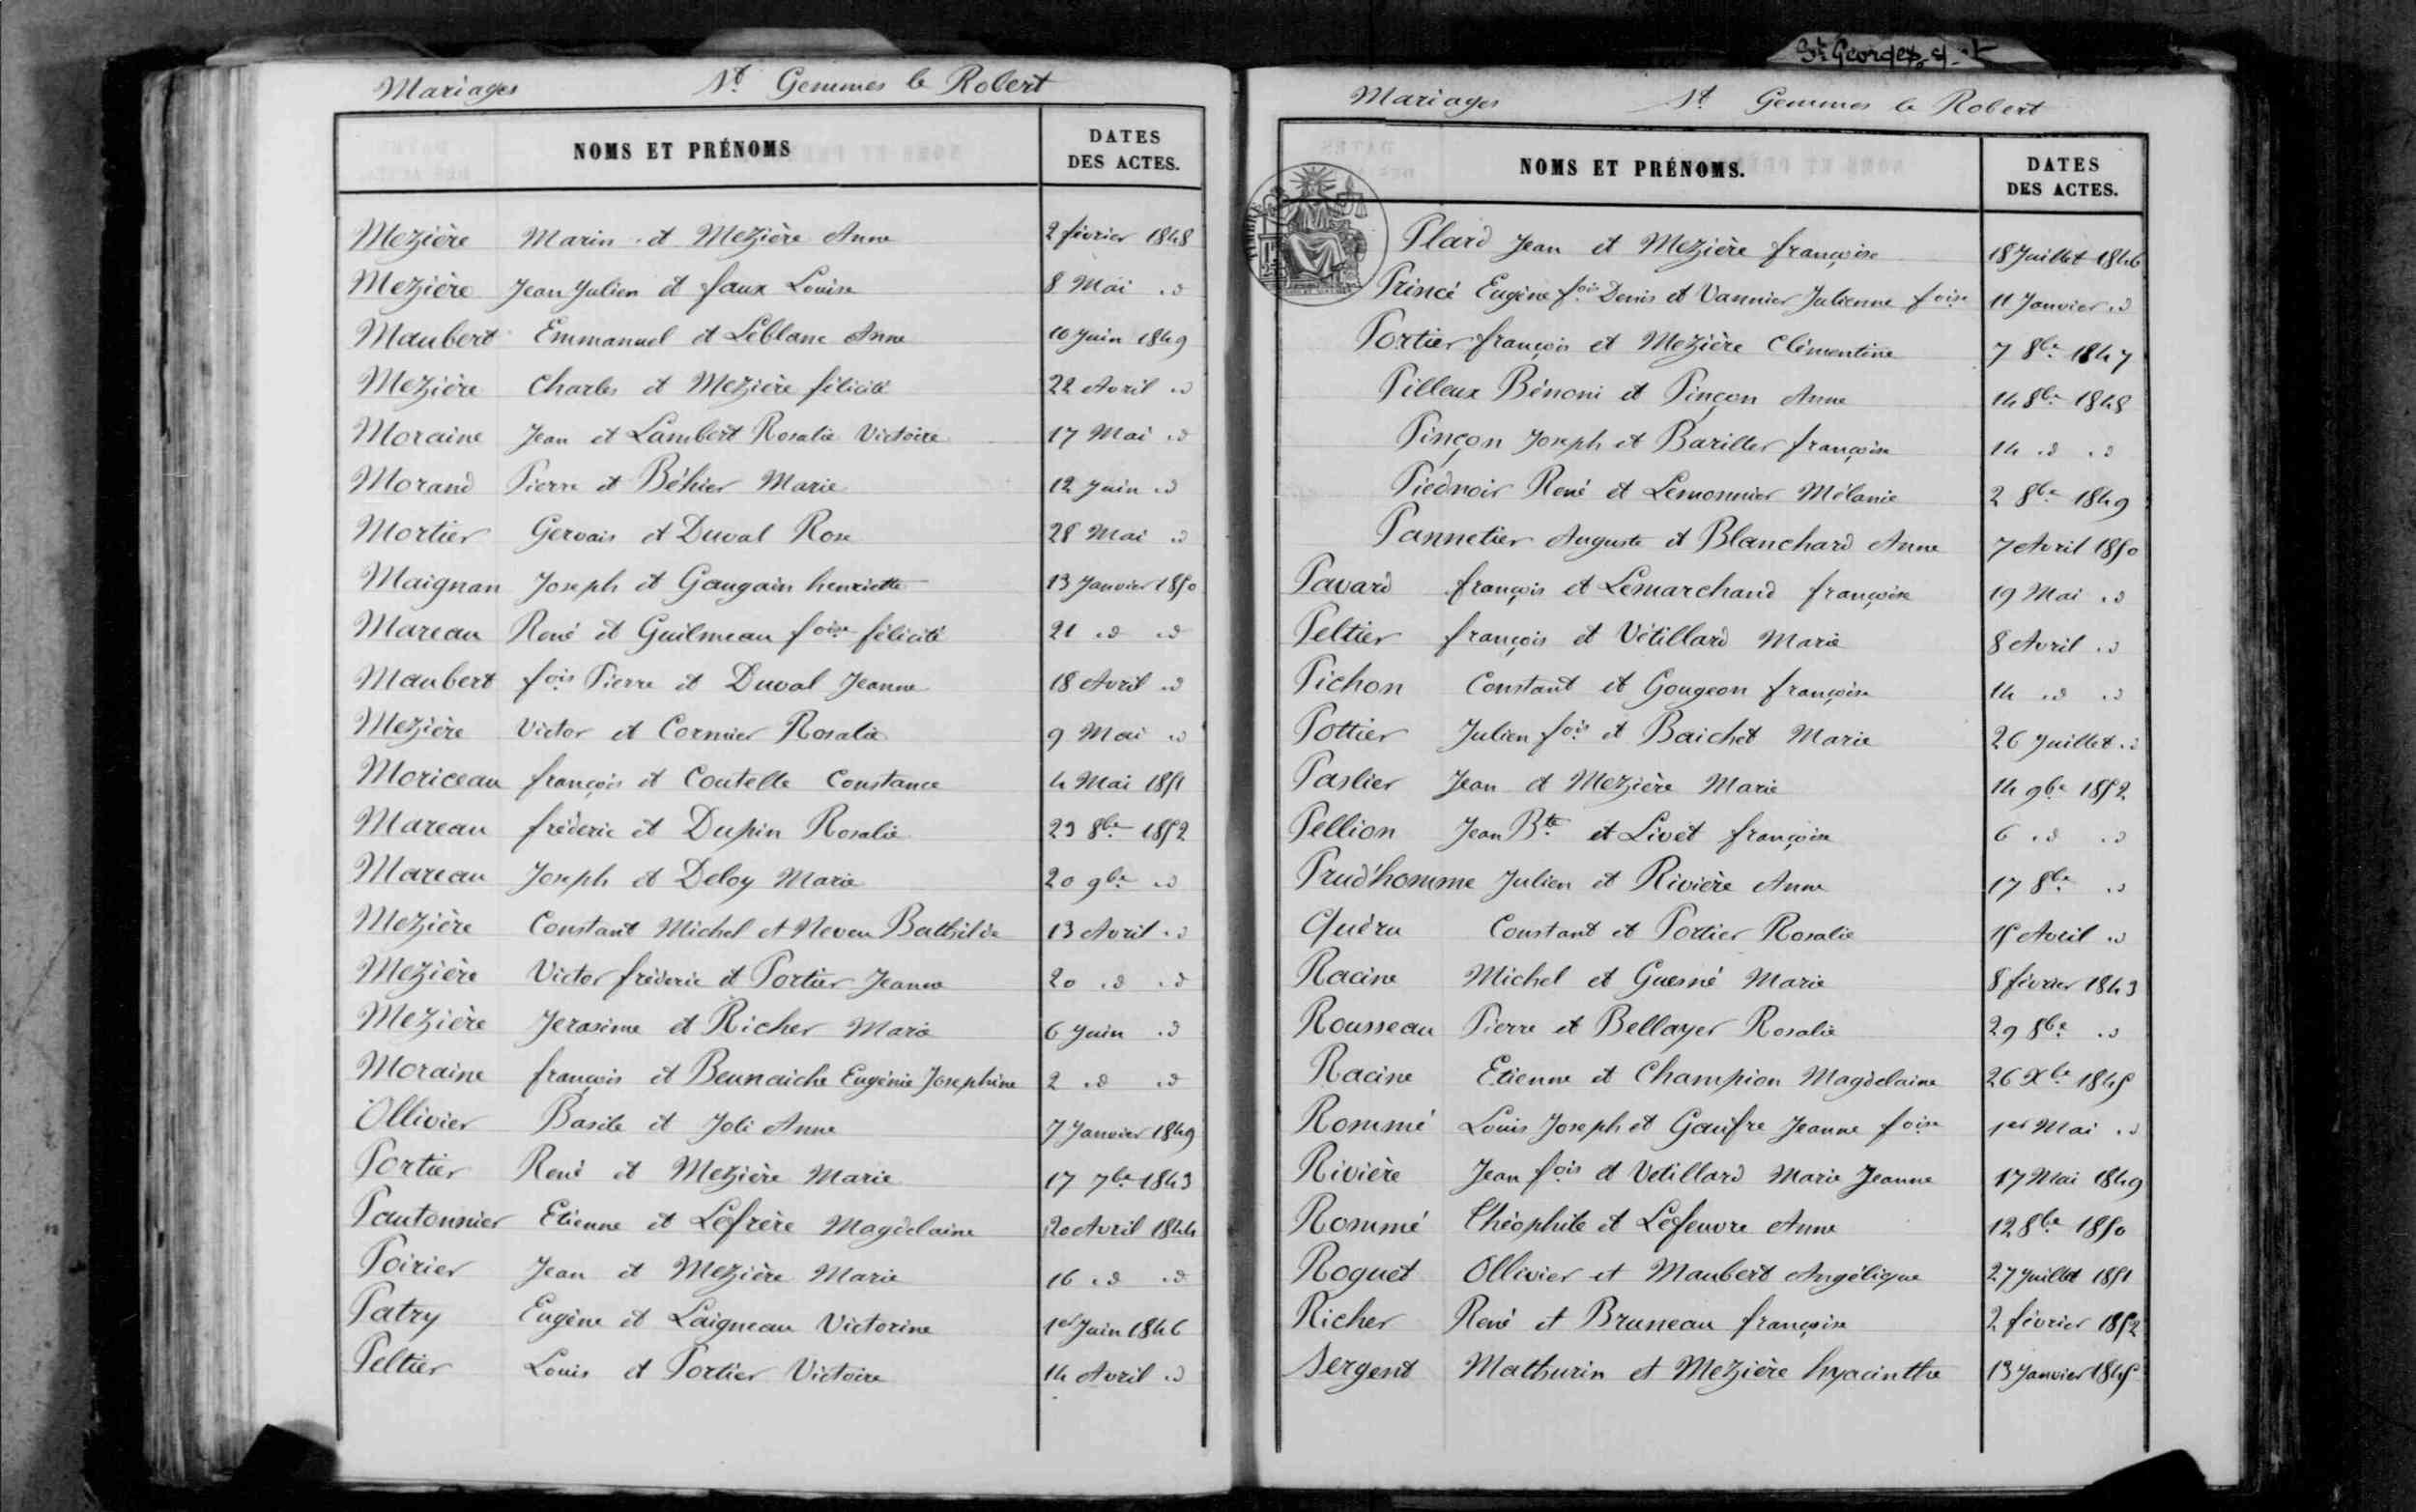 St Georges s. et
Mariages St Gemmes le Robert
NOMS ET PRÉNOMS DATES DES ACTES.
Mezière Marin et Mezière Anne 2 février 1848
Mezière Jean Julien et faux Louise 8 Mai .d
Maubert Emmanuel et Leblanc Anne 10 Juin 1849
Mezière Charles et Mezière félicité 22 Avril .d
Moraine Jean et Lambert Rosalie Victoire 17 Mai .d
Morand Pierre et Béhier Marie 12 Juin .d
Mortier Gervais et Duval Rose 28 Mai .d
Maignan Joseph et Gaugain henriette 13 Janvier 1850
Mareau René et Guilmeau foise félicité 21 .d .d
Maubert fois Pierre et Duval Jeanne 18 Avril .d
Mezière Victor et Cormier Rosalie 9 Mai .d
Moriceau françois et Coutelle Constance 4 Mai 1851
Mareau fréderic et Dupin Rosalie 23 8bre 1852
Mareau Joseph et Deloy Marie 20 9bre .d
Mezière Constant Michel et Neveu Bathilde 13 Avril .d
Mezière Victor fréderic et Portier Jeanne 20 .d .d
Mezière Jerasime et Richer Marie 6 Juin .d
Moraine françois et Beunaiche Eugénie Josephine 2 .d .d
Ollivier Basile et Joli Anne 7 Janvier 1849
Portier René et Mezière Marie 17 7bre 1843
Pautonnier Etienne et Lefrère Magdelaine 20 Avril 1844
Poirier Jean et Mezière Marie 16 .d .d
Patry Eugène et Laigneau Victorine 1er Juin 1846
Peltier Louis et Portier Victoire 14 Avril .d
Mariages St Gemmes le Robert
NOMS ET PRÉNOMS. DATES DES ACTES.
TIMBRE
Plard Jean et Mezière françoise 18 Juillet 1846
Princé Eugène fois Denis et Vannier Julienne foise 11 Janvier .d
Portier françois et Mezière Clémentine 7 8bre 1847
Pilleux Bénoni et Pinçon Anne 14 8bre 1848
Pinçon Joseph et Bariller françoise 14 .d .d
Piednoir René et Lemonnier Mélanie 2 8bre 1849
Pannetier Auguste et Blanchard Anne 7 Avril 1850
Pavard françois et Lemarchand françoise 19 Mai .d
Peltier françois et Vétillard Marie 8 Avril .d
Pichon Constant et Gougeon françoise 14 .d .d
Pottier Julien fois et Baichet Marie 26 Juillet .d
Paslier Jean et Mezière Marie 14 9bre 1852
Pellion Jean Bte et Livet françoise 6 .d .d
Prud'homme Julien et Rivière Anne 17 8bre .d
Quéru Constant et Portier Rosalie 15 Avril .d
Racine Michel et Guesné Marie 8 février 1843
Rousseau Pierre et Bellayer Rosalie 29 8bre .d
Racine Etienne et Champion Magdelaine 26 Xbre 1845
Rommé Louis Joseph et Gaufre Jeanne foise 1er Mai .d
Rivière Jean fois et Vetillard Marie Jeanne 17 Mai 1849
Rommé Théophile et Lefeuvre Anne 12 8bre 1850
Roguet Ollivier et Maubert Angélique 27 Juillet 1851
Richer René et Bruneau françoise 2 février 1852
Sergent Mathurin et Mezière hyacinthe 13 Janvier 1845